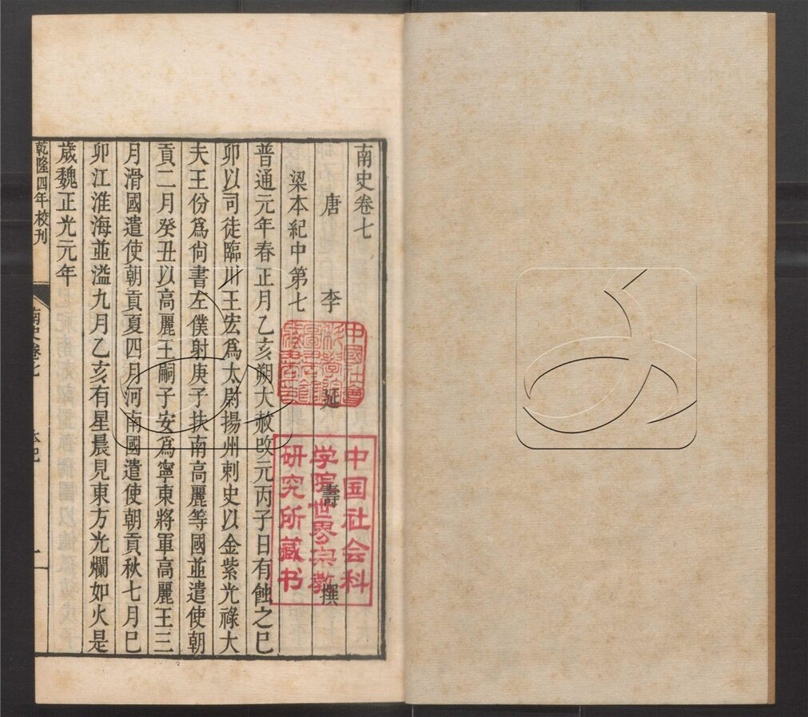 南史卷七
唐 李 延 壽 撰
梁本紀中第七
普通元年春正月乙亥朔大赦改元丙子日有蝕之巳
卯以司徒臨川王宏爲太尉揚州刺史以金紫光祿大
夫王份爲尙書左僕射庚子扶南高麗等國並遣使朝
貢二月癸丑以高麗王嗣子安爲寧東將軍高麗王三
月滑國遣使朝貢夏四月河南國遣使朝貢秋七月巳
卯江淮海並溢九月乙亥有星晨見東方光爛如火是
歲魏正光元年
乾隆四年校刊
南史卷七
本紀
一
中國社會
科學院
中国社会科
学院世界宗教
研究所藏书